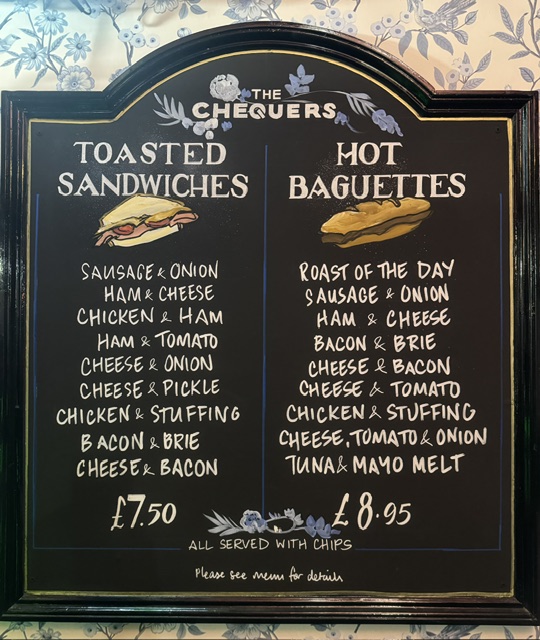 THE
CHEQUERS
TOASTED
SANDWICHES
SAUSAGE & ONION
HAM & CHEESE
CHICKEN & HAM
HAM & TOMATO
CHEESE & ONION
CHEESE & PICKLE
CHICKEN & STUFFING
BACON & BRIE
CHEESE & BACON
£7.50
HOT
BAGUETTES
ROAST OF THE DAY
SAUSAGE & ONION
HAM & CHEESE
BACON & BRIE
CHEESE & BACON
CHEESE & TOMATO
CHICKEN & STUFFING
CHEESE, TOMATO & ONION
TUNA & MAYO MELT
£8.95
ALL SERVED WITH CHIPS
Please see menu for details